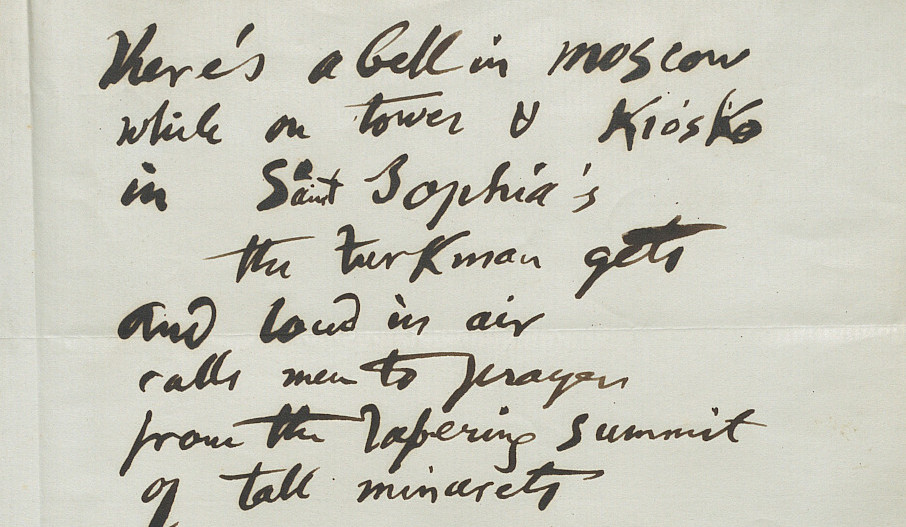 There's a bell in Moscow
while on tower & Kiosko
in Saint Sophia's
the Turkman gets
and loud in air
calls men to prayer
from the tapering summit
of tall minarets